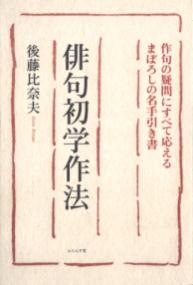 作句の疑問にすべて応える
まぼろしの名手引き書
俳句初学作法
後藤比奈夫